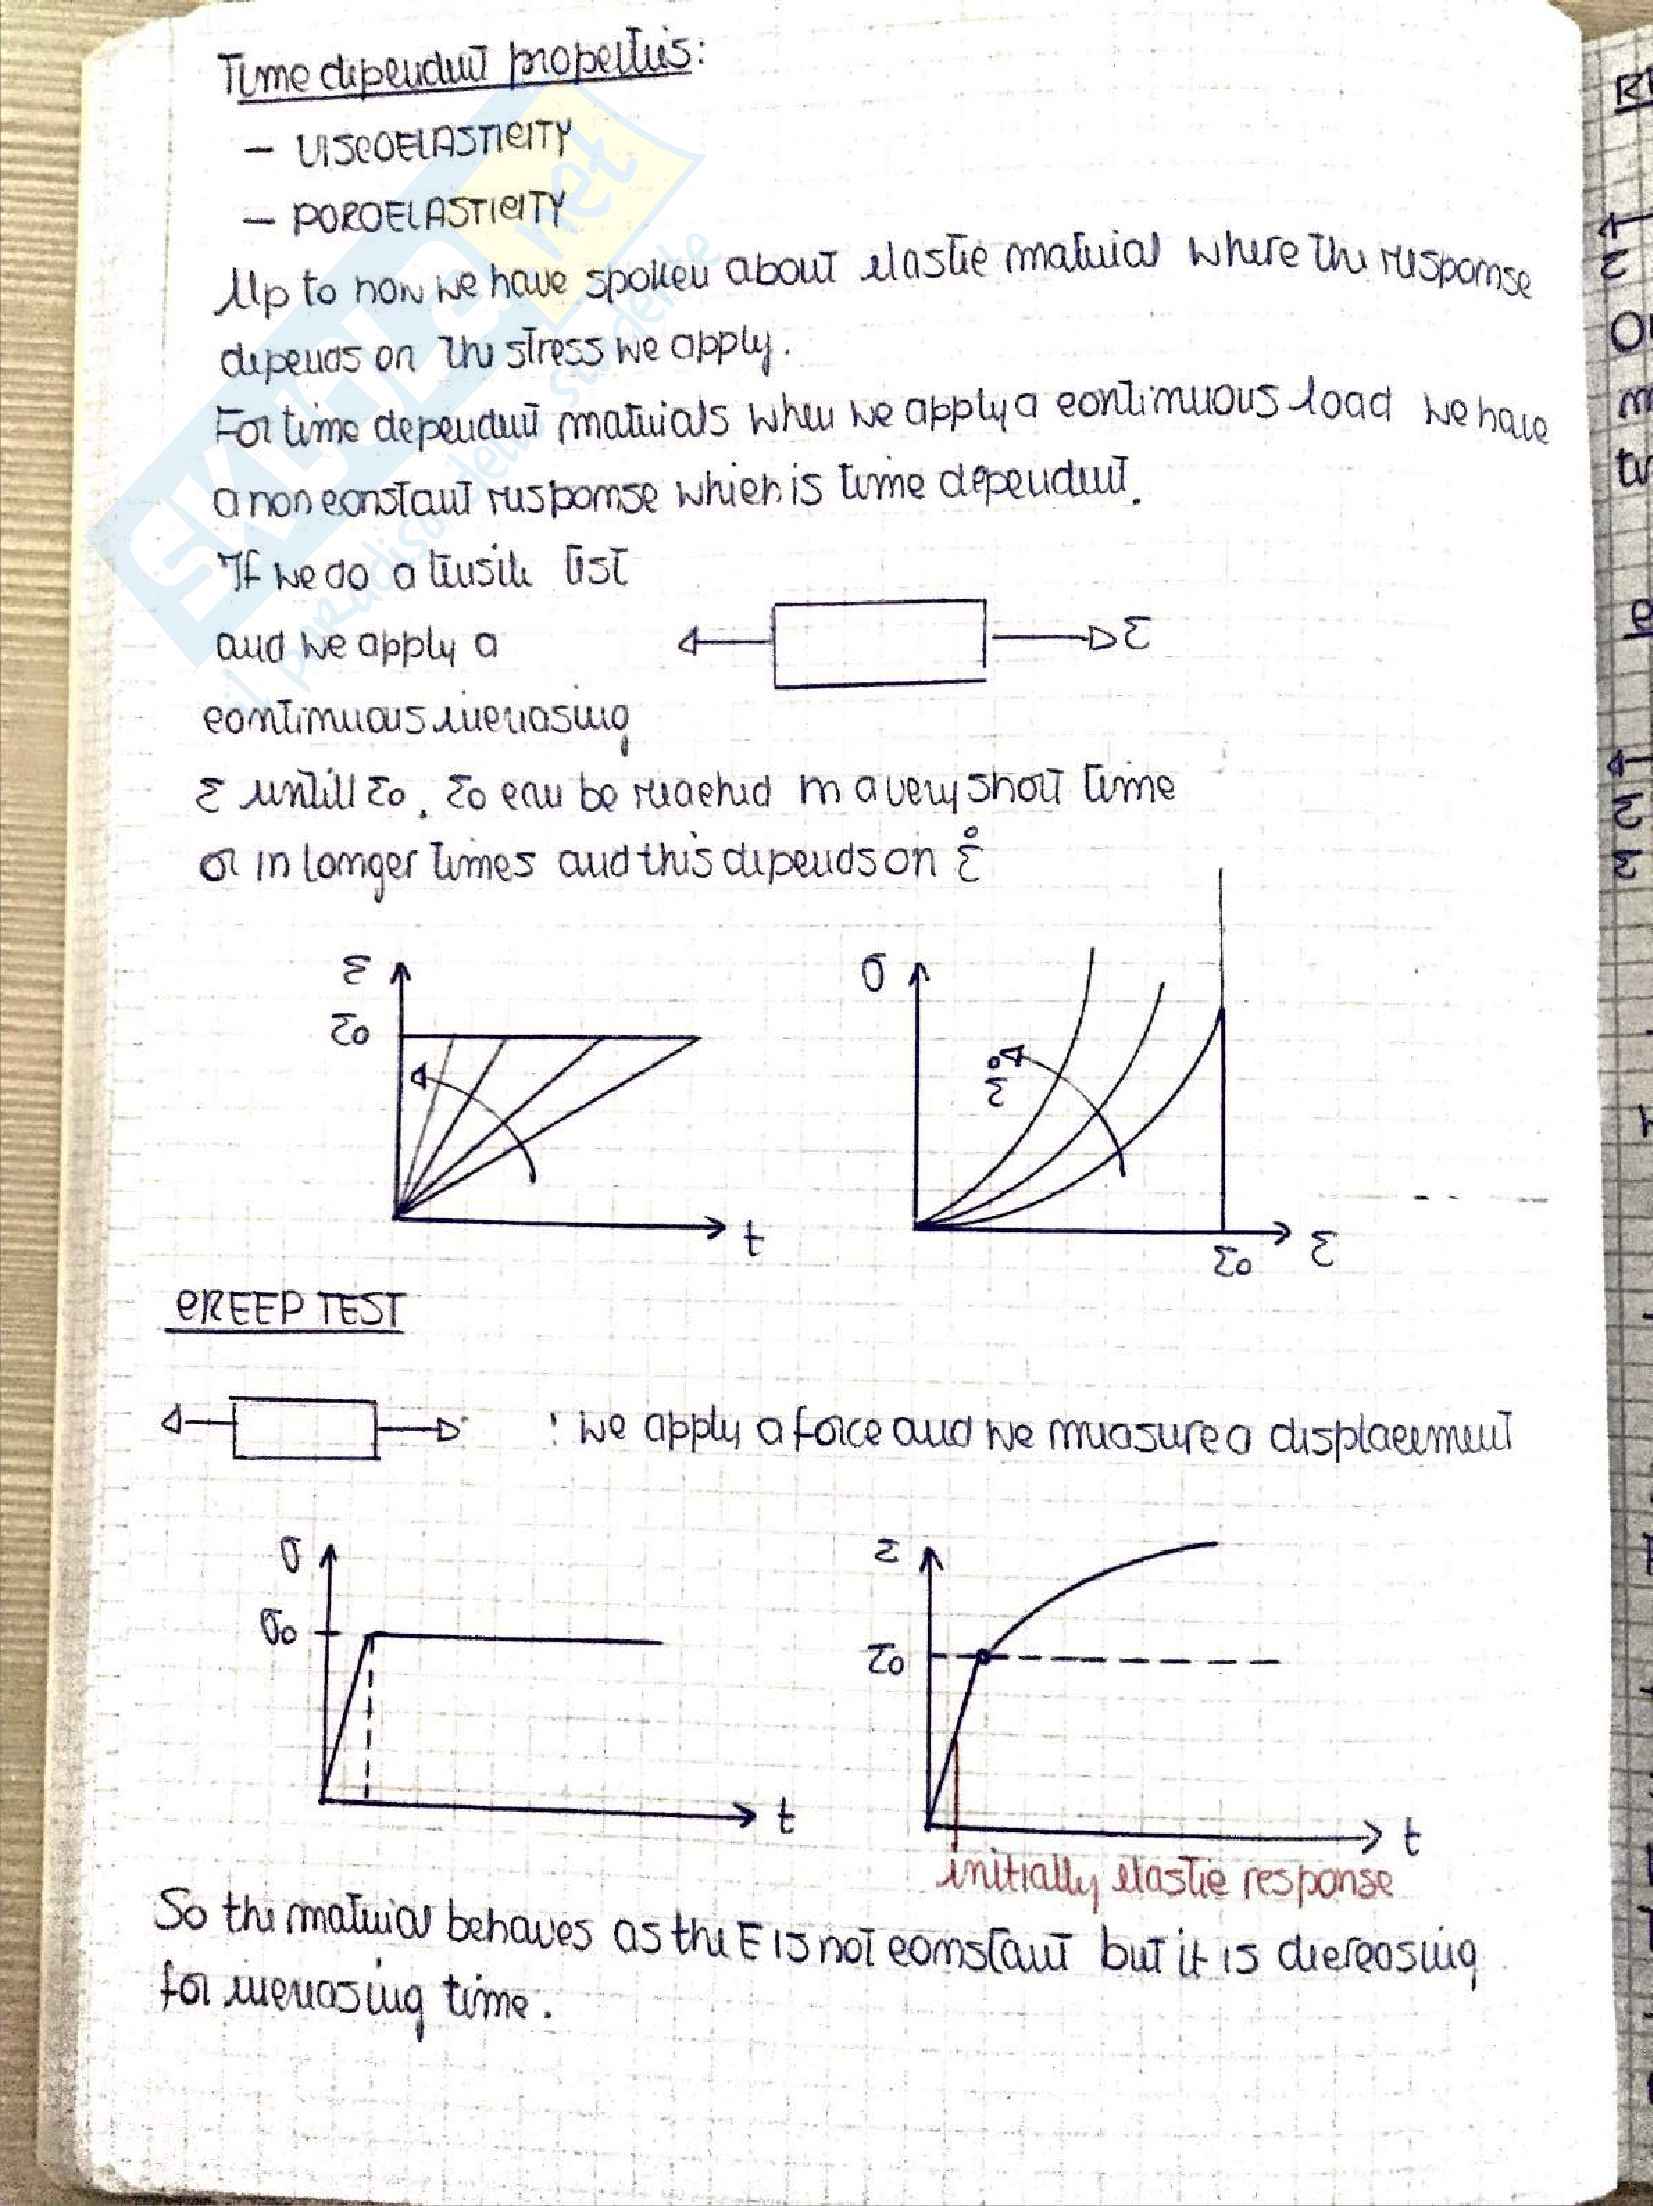 Time dependent properties:
- VISCOELASTICITY
- POROELASTICITY
Up to now we have spoken about elastic material where the response
depends on the stress we apply.
For time dependent materials when we apply a continuous load we have
a non constant response which is time dependent.
If we do a tensile test
and we apply a
ε
continuous increasing
ε untill ε0. ε0 can be reached in a very short time
or in longer times and this dipends on ε̇
ε
ε0
t
σ
ε̇
ε0 ε
CREEP TEST
: we apply a force and we measure a displacement
σ
σ0
t
ε
ε0
t
initially elastic response
So the material behaves as the E is not constant but it is decreasing
for increasing time.
SKUOLA.net
il paradiso dello studente